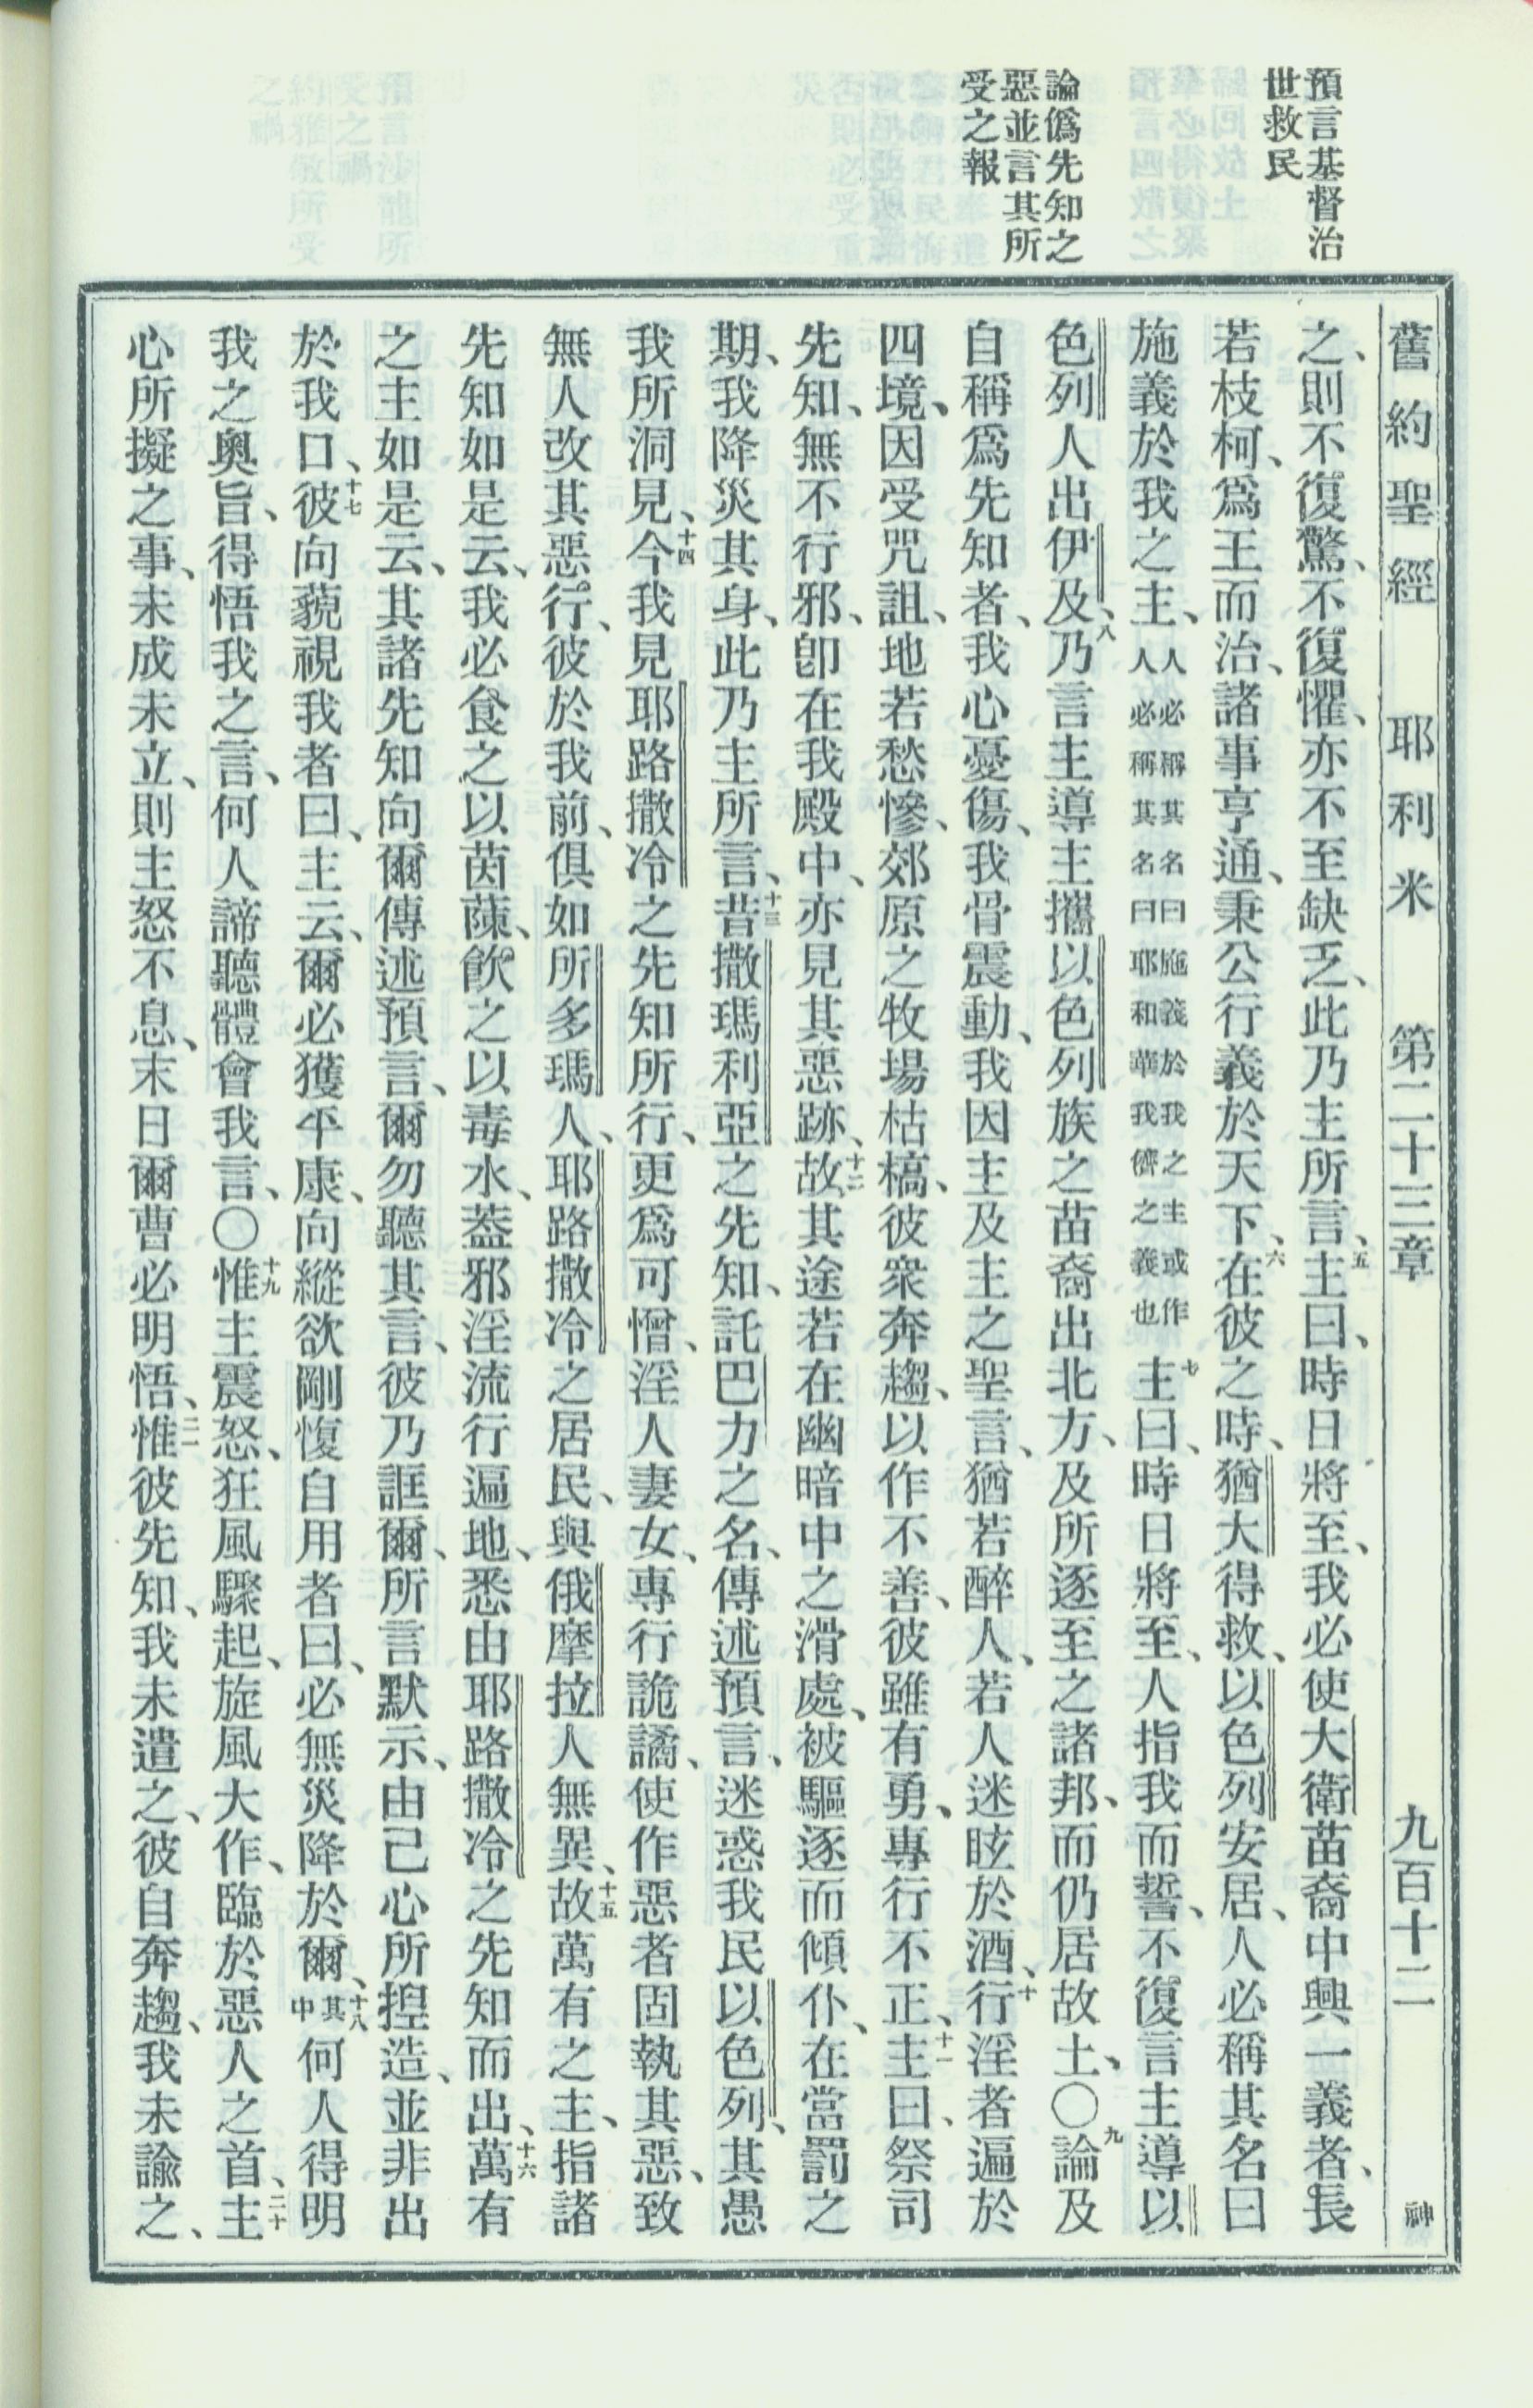 預言基督治
世救民
論僞先知之
惡並言其所
受之報
舊約聖經 耶利米 第二十三章 九百十二 神
之、則不復驚、不復懼、亦不至缺乏、此乃主所言、五主曰、時日將至、我必使大衛苗裔中興一義者、長
若枝柯、爲王而治、諸事亨通、秉公行義於天下、六在彼之時、猶大得救、以色列安居、人必稱其名曰
施義於我之主、人必稱其名曰施義於我之主或作人必稱其名曰耶和華我儕之義也七主曰、時日將至、人指我而誓、不復言主導以
色列人出伊及、八乃言主導主攜以色列族之苗裔出北方、及所逐至之諸邦、而仍居故土、〇九論及
自稱爲先知者、我心憂傷、我骨震動、我因主及主之聖言、猶若醉人、若人迷眩於酒、十行淫者遍於
四境、因受咒詛、地若愁慘、郊原之牧場枯槁、彼衆奔趨、以作不善、彼雖有勇、專行不正、十一主曰、祭司
先知、無不行邪、卽在我殿中、亦見其惡跡、十二故其途若在幽暗中之滑處、被驅逐而傾仆、在當罰之
期、我降災其身、此乃主所言、十三昔撒瑪利亞之先知、託巴力之名、傳述預言、迷惑我民以色列、其愚
我所洞見、十四今我見耶路撒冷之先知所行、更爲可憎、淫人妻女、專行詭譎、使作惡者固執其惡、致
無人改其惡行、彼於我前、俱如所多瑪人、耶路撒冷之居民、與俄摩拉人無異、十五故萬有之主、指諸
先知如是云、我必食之以茵蔯、飲之以毒水、蓋邪淫流行遍地、悉由耶路撒冷之先知而出、十六萬有
之主如是云、其諸先知向爾傳述預言、爾勿聽其言、彼乃誆爾、所言默示、由己心所揑造、並非出
於我口、十七彼向藐視我者曰、主云、爾必獲平康、向縱欲剛愎自用者曰、必無災降於爾、十八其中何人得明
我之奧旨、得悟我之言、何人諦聽體會我言、〇十九惟主震怒、狂風驟起、旋風大作、臨於惡人之首、二十主
心所擬之事、未成未立、則主怒不息、末日爾曹必明悟、二一惟彼先知、我未遣之、彼自奔趨、我未諭之、